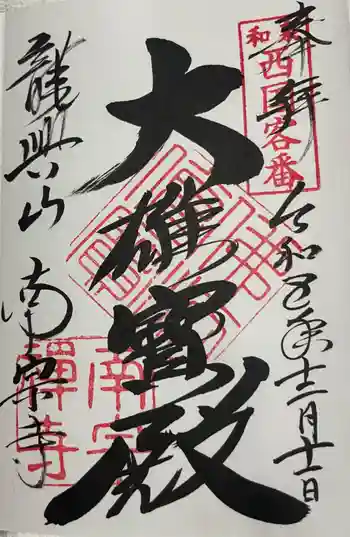 奉拝
和泉
西国客番
令和五年十二月十一日
大雄寶殿
龍興山
南宗寺
南宗
禅寺